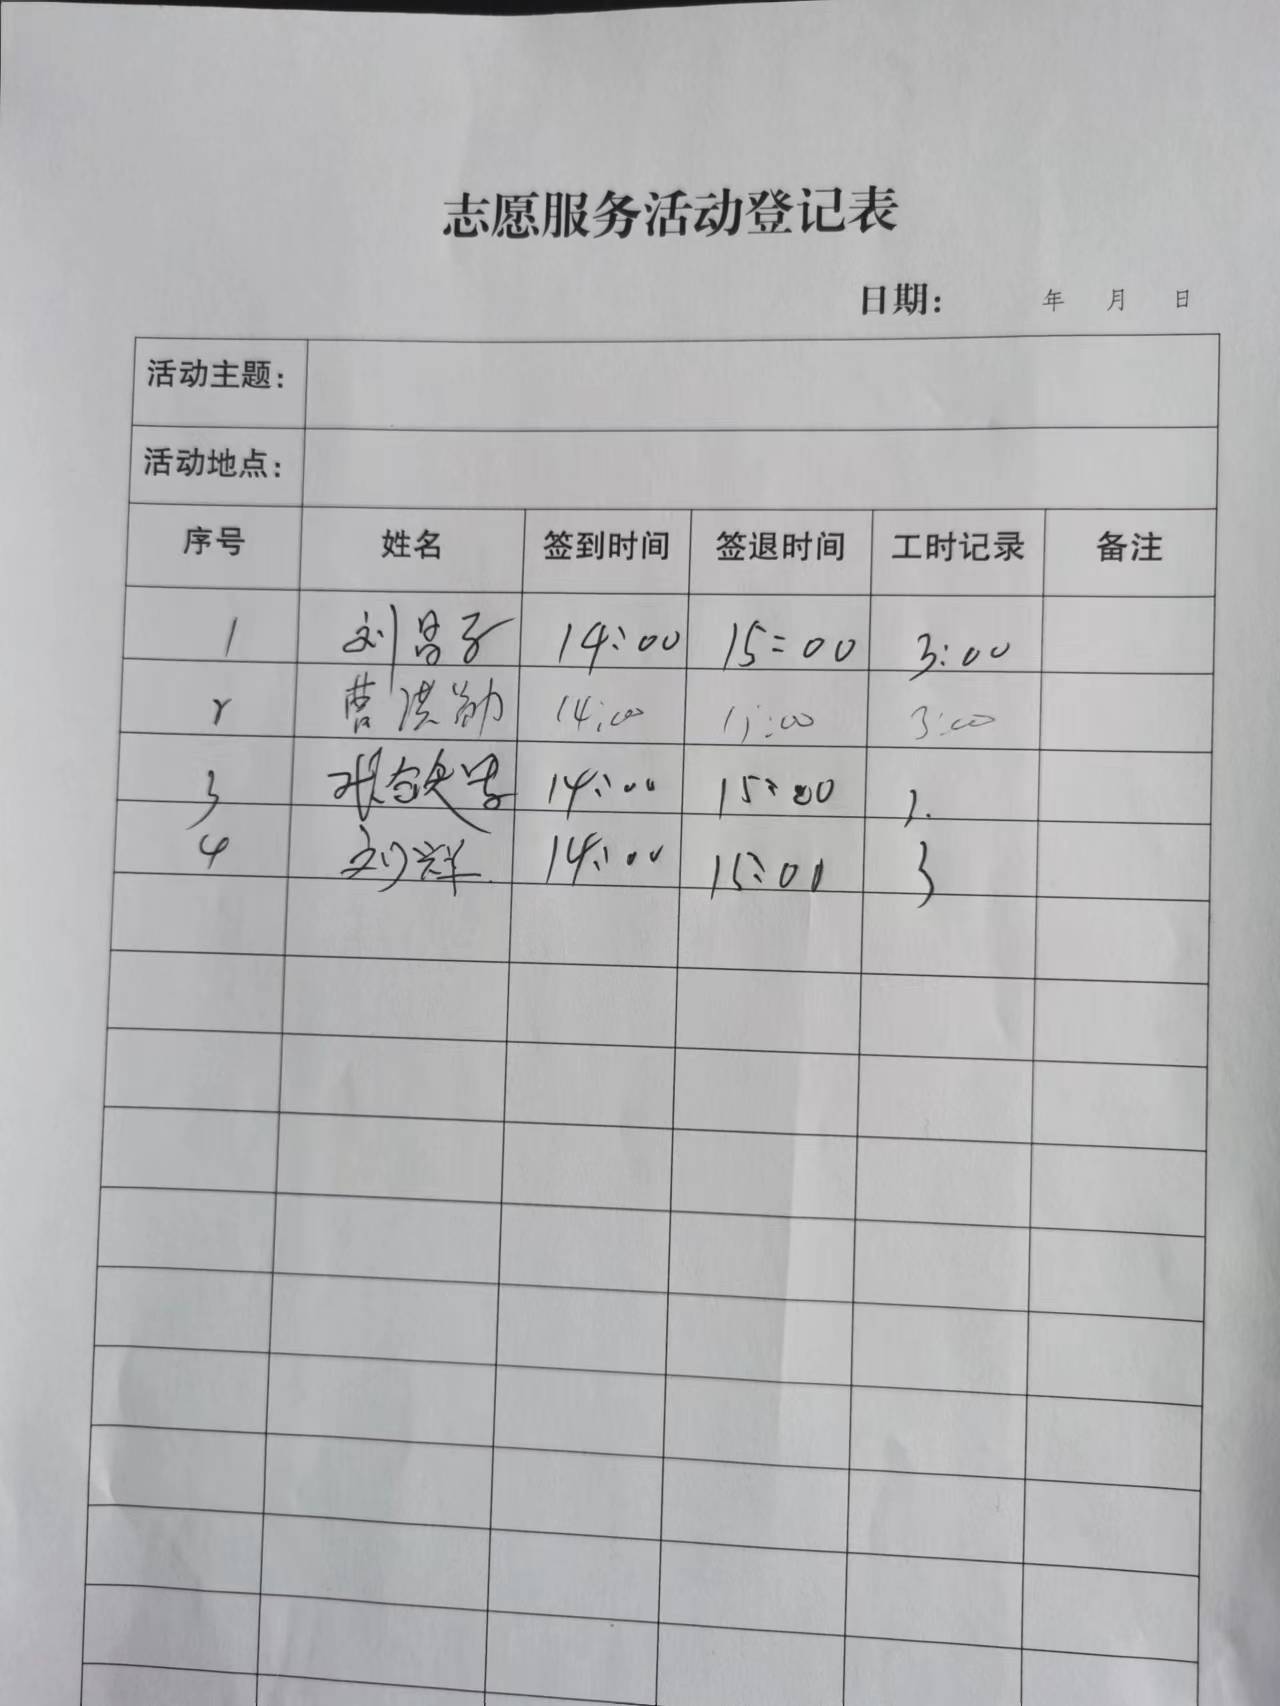 志愿服务活动登记表
日期： 年 月 日
活动主题：
活动地点：
序号 姓名 签到时间 签退时间 工时记录 备注
1 刘昌子 14:00 15:00 3:00
2 曹洪勋 14:00 15:00 3:00
3 张 14:00 15:00
4 刘祥 14:00 15:00 3